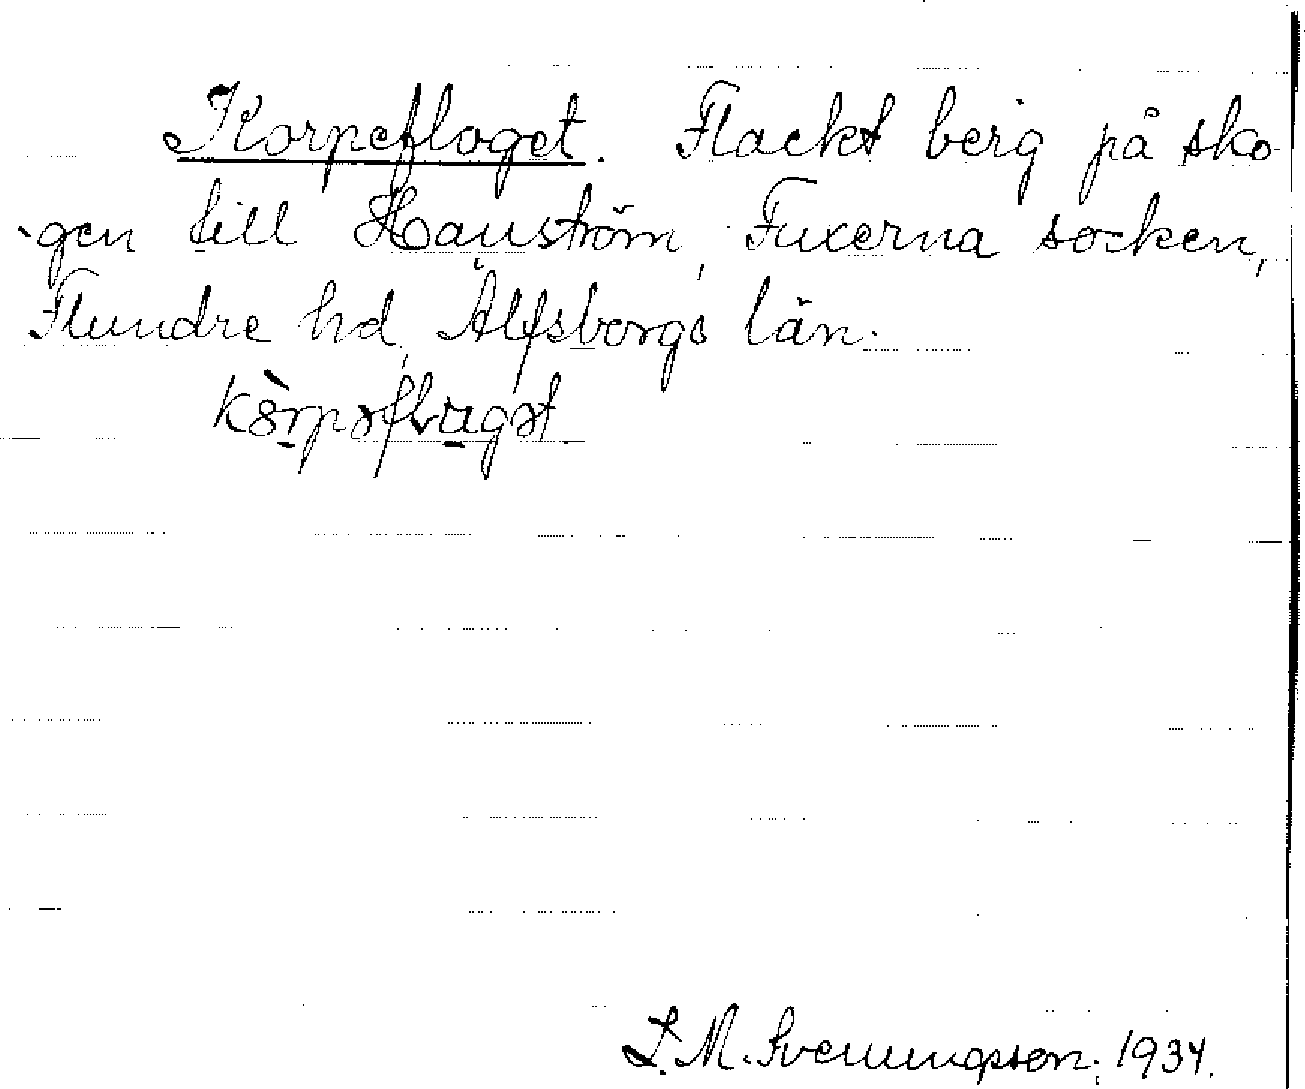 Korpeflaget. Flackt berg på sko-
gen till Hanström, Fuxerna socken,
Flundre hd, Älfsborgs län.
S. M. Svenungsson, 1934.